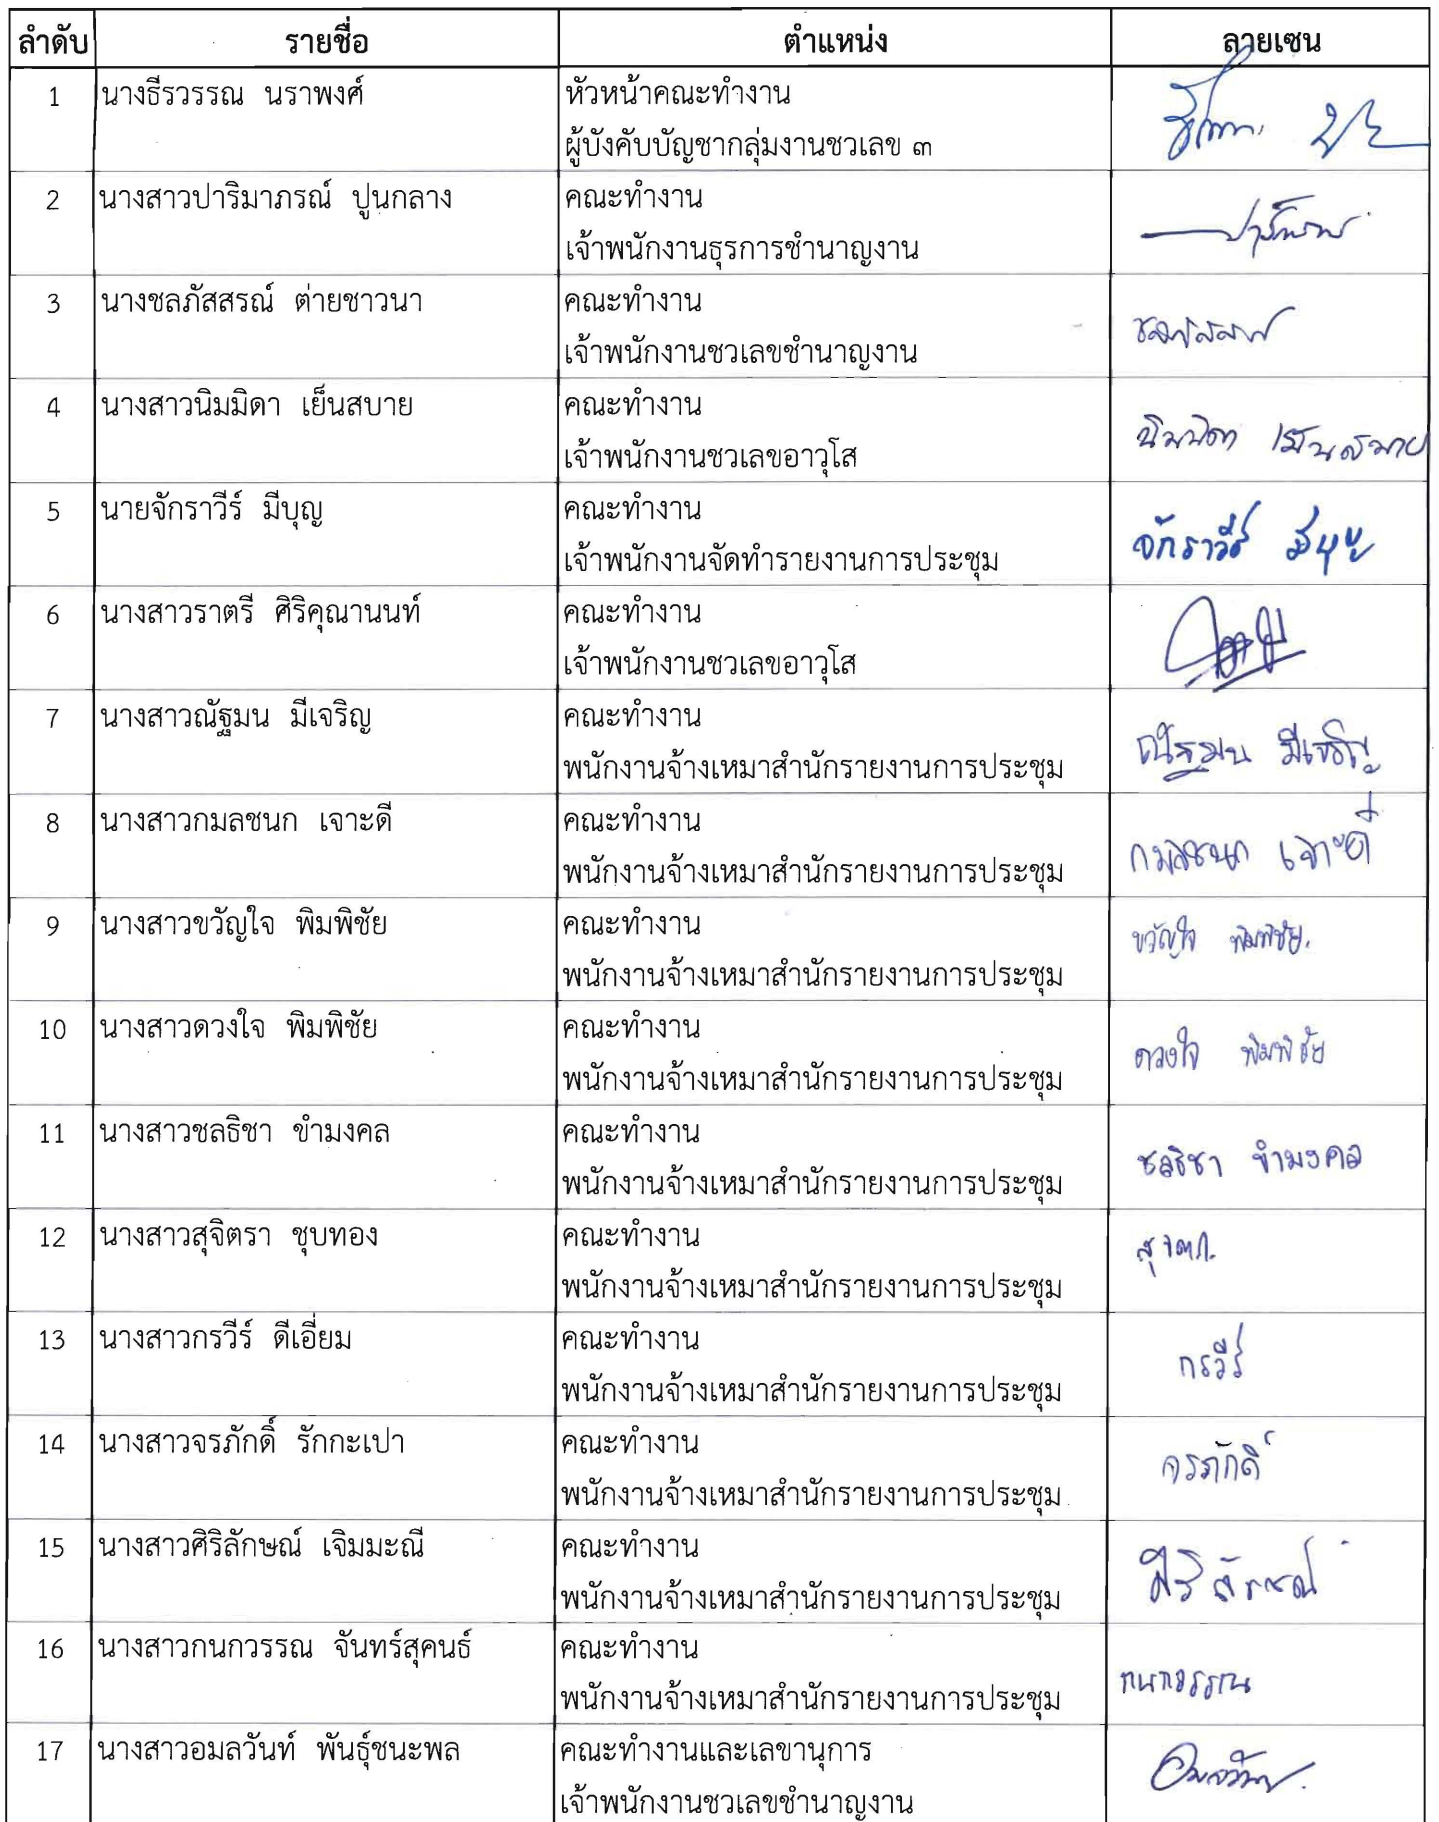 ลำดับ รายชื่อ ตำแหน่ง ลายเซน
1 นางธีรวรรณ นราพงศ์ หัวหน้าคณะทำงาน
ผู้บังคับบัญชากลุ่มงานชวเลข ๓
2 นางสาวปาริมาภรณ์ ปูนกลาง คณะทำงาน
เจ้าพนักงานธุรการชำนาญงาน
3 นางชลภัสสรณ์ ต่ายชาวนา คณะทำงาน
เจ้าพนักงานชวเลขชำนาญงาน ชลภัสสรณ์
4 นางสาวนิมมิดา เย็นสบาย คณะทำงาน
เจ้าพนักงานชวเลขอาวุโส นิมมิดา เย็นสบาย
5 นายจักราวีร์ มีบุญ คณะทำงาน
เจ้าพนักงานจัดทำรายงานการประชุม จักราวีร์ มีบุญ
6 นางสาวราตรี ศิริคุณานนท์ คณะทำงาน
เจ้าพนักงานชวเลขอาวุโส
7 นางสาวณัฐมน มีเจริญ คณะทำงาน
พนักงานจ้างเหมาสำนักรายงานการประชุม ณัฐมน มีเจริญ
8 นางสาวกมลชนก เจาะดี คณะทำงาน
พนักงานจ้างเหมาสำนักรายงานการประชุม กมลชนก เจาะดี
9 นางสาวขวัญใจ พิมพิชัย คณะทำงาน ขวัญใจ พิมพิชัย.
พนักงานจ้างเหมาสำนักรายงานการประชุม
10 นางสาวดวงใจ พิมพิชัย คณะทำงาน ดวงใจ พิมพิชัย
พนักงานจ้างเหมาสำนักรายงานการประชุม
11 นางสาวชลธิชา ขำมงคล คณะทำงาน
พนักงานจ้างเหมาสำนักรายงานการประชุม ชลธิชา ขำมงคล
12 นางสาวสุจิตรา ชุบทอง คณะทำงาน สุจิตรา
พนักงานจ้างเหมาสำนักรายงานการประชุม
13 นางสาวกรวีร์ ดีเอี่ยม คณะทำงาน กรวีร์
พนักงานจ้างเหมาสำนักรายงานการประชุม
14 นางสาวจรภักดิ์ รักกะเปา คณะทำงาน จรภักดิ์
พนักงานจ้างเหมาสำนักรายงานการประชุม
15 นางสาวศิริลักษณ์ เจิมมะณี คณะทำงาน
พนักงานจ้างเหมาสำนักรายงานการประชุม ศิริลักษณ์
16 นางสาวกนกวรรณ จันทร์สุคนธ์ คณะทำงาน
พนักงานจ้างเหมาสำนักรายงานการประชุม กนกวรรณ
17 นางสาวอมลวันท์ พันธุ์ชนะพล คณะทำงานและเลขานุการ
เจ้าพนักงานชวเลขชำนาญงาน